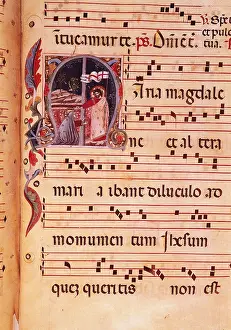 et pulc
tua.
tucamur te. ps.
Maria magdale
ne et al tera
mari a ibant diluculo ad
monumen tum ihesum
quez queritis non est